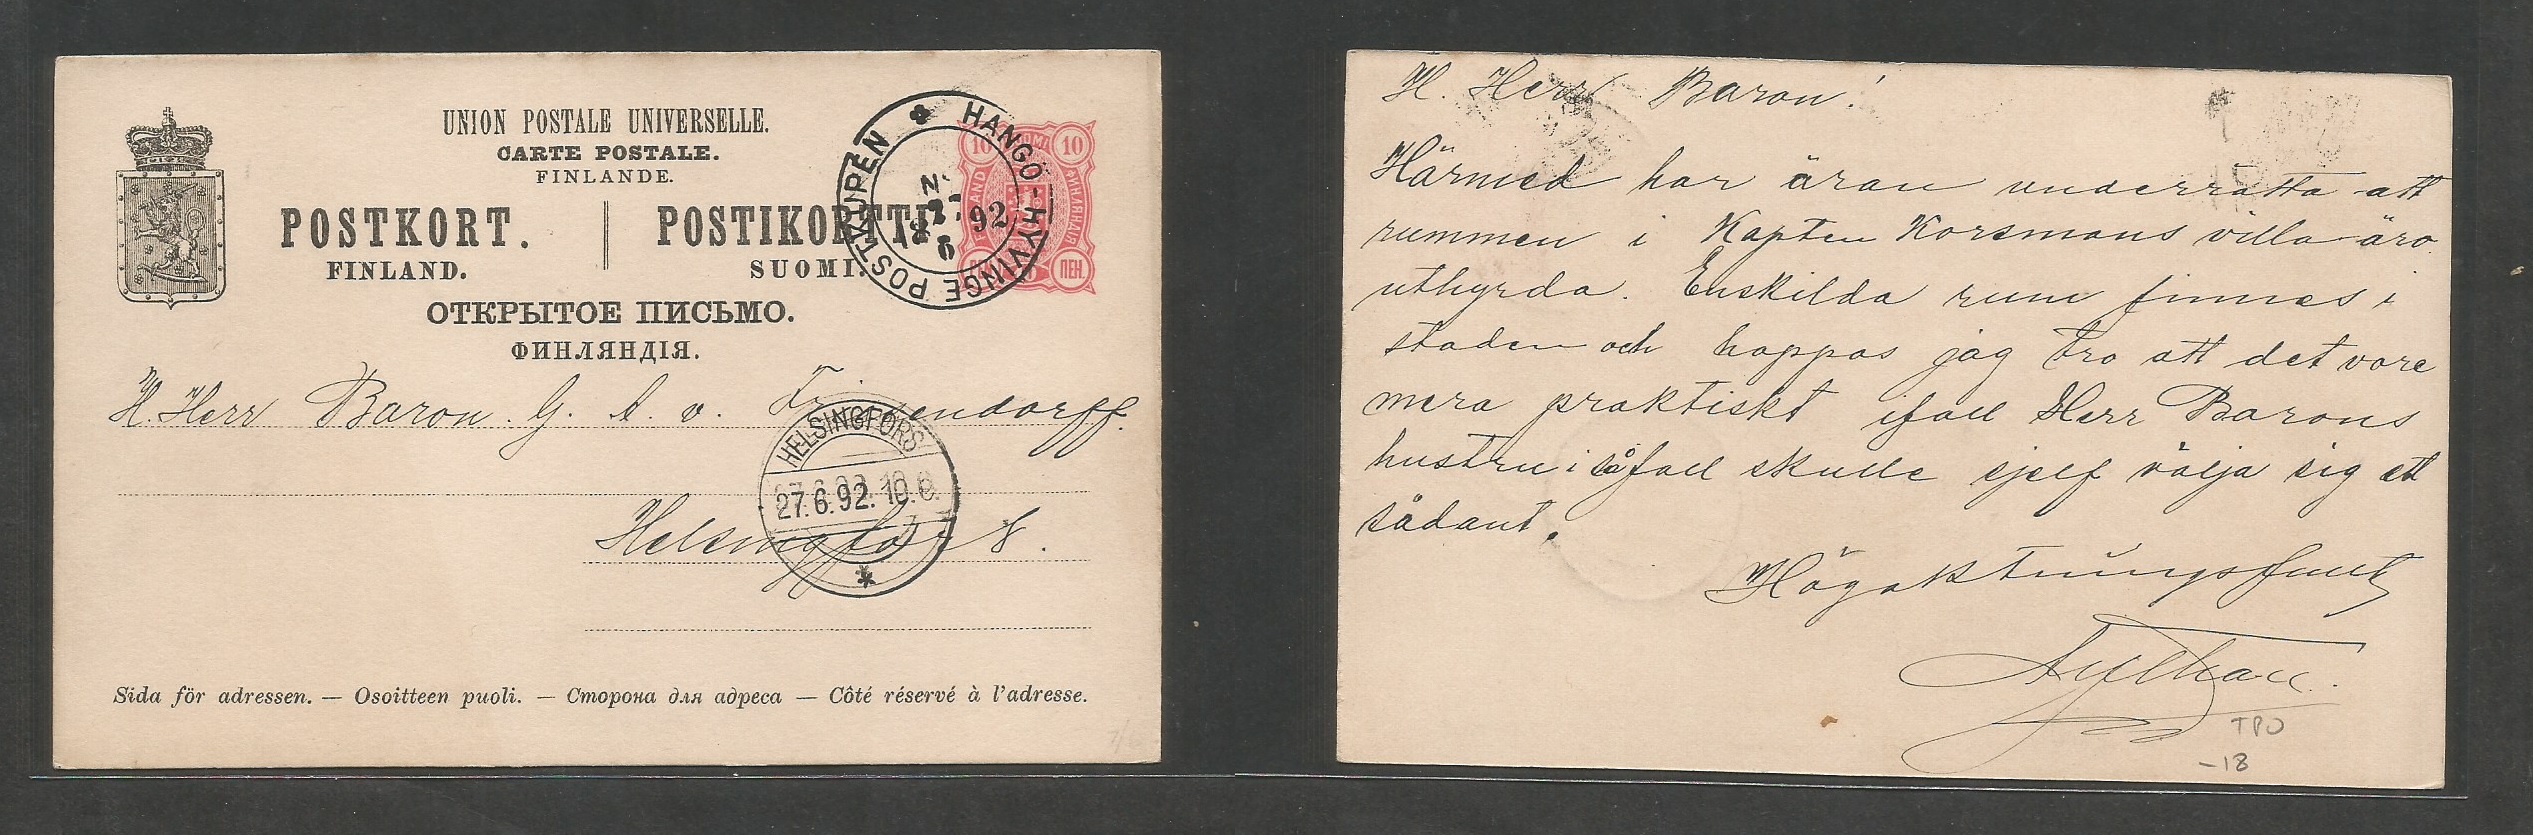 UNION POSTALE UNIVERSELLE.
CARTE POSTALE.
FINLANDE.
POSTKORT. | POSTIKORTTI
FINLAND. SUOMI.
ОТКРЫТОЕ ПИСЬМО.
ФИНЛЯНДІЯ.
10 10
ПЕН.
HANGÖ-HYVINGE POSTKUPÉN
18 27/6 92
H. Herr Baron. G. A. v.
HELSINGFORS
27.6.92. 10.
Helsingfors.
Sida för adressen. — Osoitteen puoli. — Сторона для адреса — Côté réservé à l'adresse.
H. Herr Baron!
Härmed har äran underrätta att
rummen i Kapten Korsmans villa äro
uthyrda. Enskilda rum finnes i
staden och hoppas jag tro att det vore
mera praktiskt ifall Herr Barons
hustru i såfall skulle sjelf välja sig ett
sådant.
Högaktningsfullt
TPO
-18